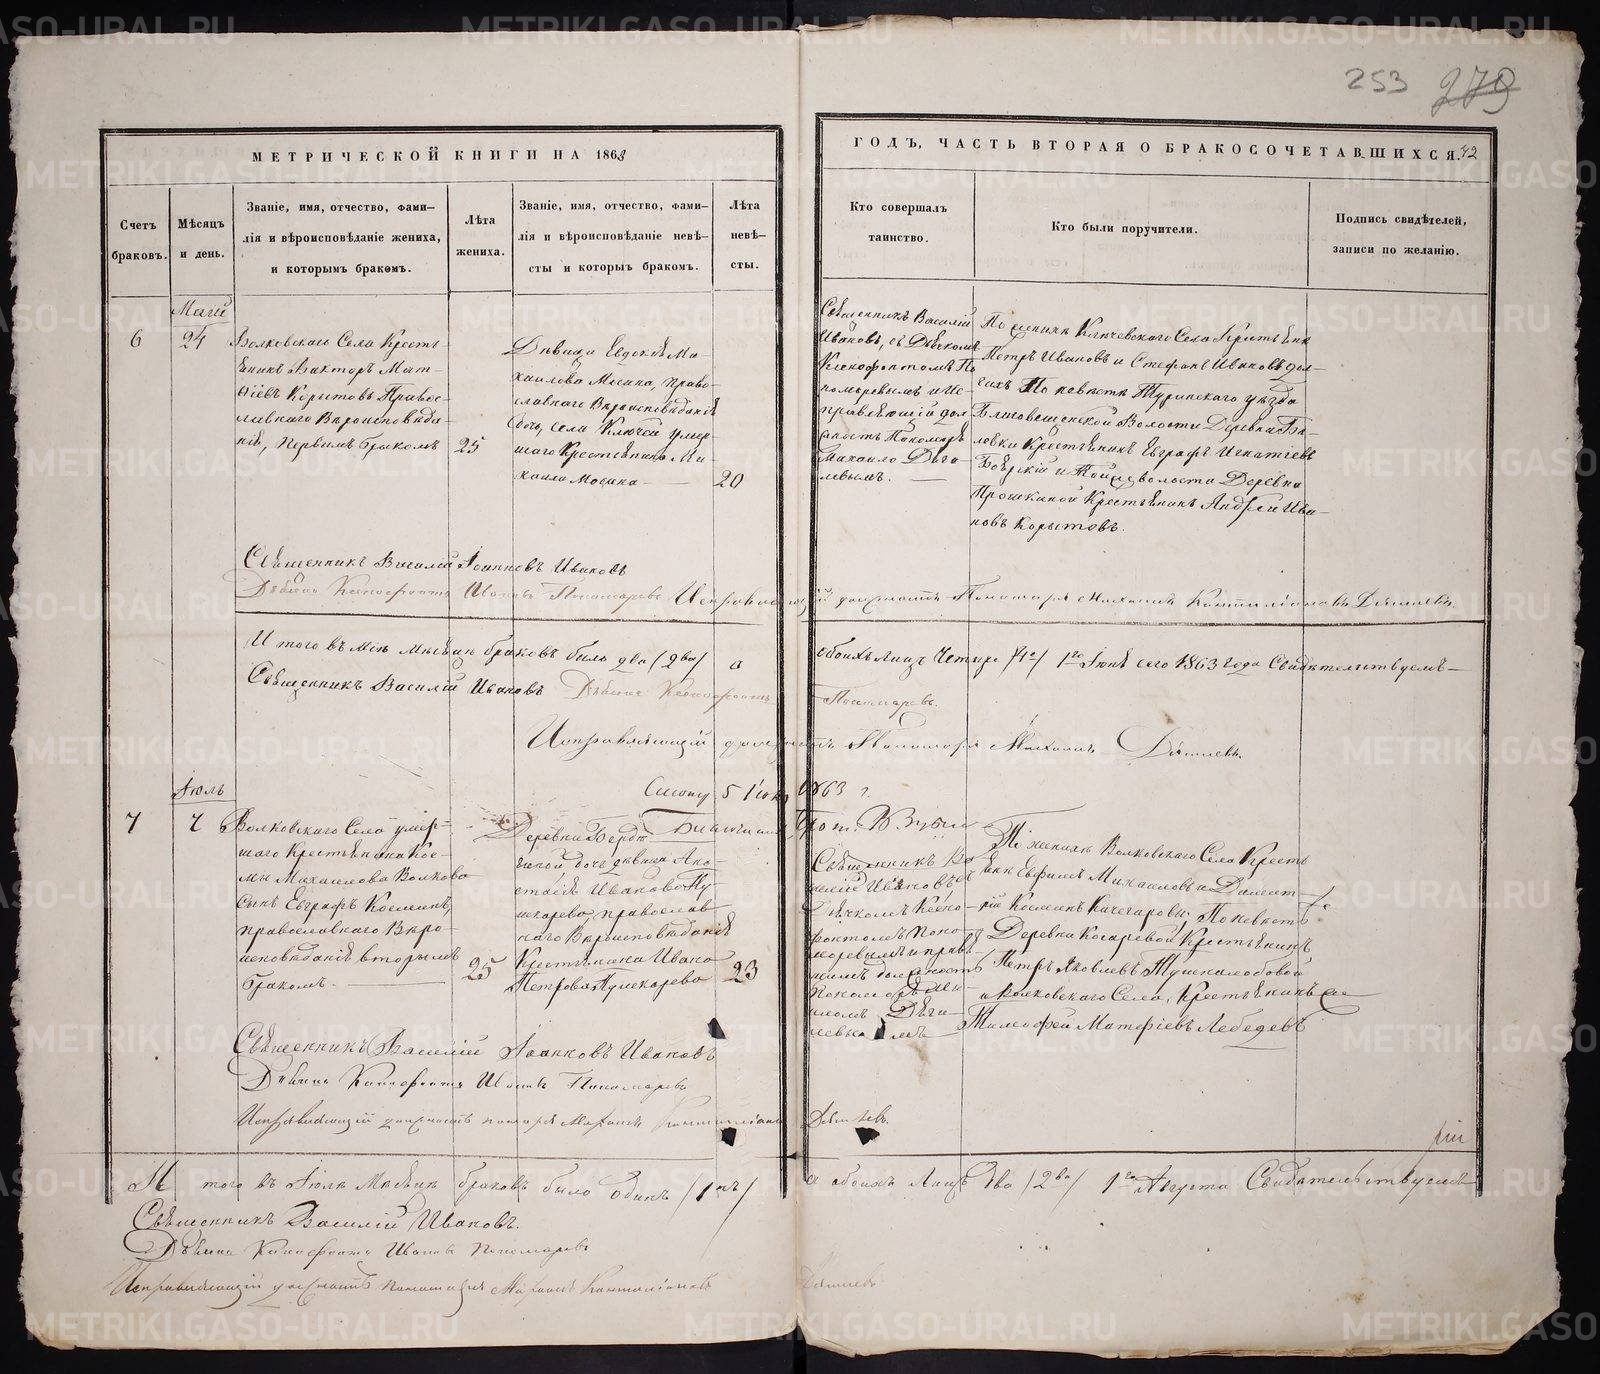 253 279
МЕТРИЧЕСКОЙ КНИГИ НА 1863
ГОДЪ, ЧАСТЬ ВТОРАЯ О БРАКОСОЧЕТАВШИХСЯ. 42
Счетъ
браковъ.
Мѣсяцъ
и день.
Званіе, имя, отчество, фами-
лія и вѣроисповѣданіе жениха,
и которымъ бракомъ.
Лѣта
жениха.
Званіе, имя, отчество, фами-
лія и вѣроисповѣданіе невѣ-
сты и которыъ бракомъ.
Лѣта
невѣ-
сты.
Кто совершалъ
таинство.
Кто были поручители.
Подпись свидѣтелей,
записи по желанію.
Маій
6
24
Волковскаго Села Кресть
янинъ Викторъ Мат-
ѳіевъ Корытовъ Правос-
лавнаго Вѣроисповѣда-
нія, первымъ бракомъ
25
Дѣвица Евдокія Ми-
хаилова Мосина, право-
славнаго Вѣроисповѣданія
дочь, села Ключей умер-
шаго Крестьянина Ми-
хаила Мосина
20
Священникъ Василій
Ивановъ, съ Дьячкомъ
Ксенофонтомъ По
номаревымъ и Ис-
правляющій дол
жность Пономаря
Михаило Дяги-
левымъ.
По женихѣ Ключевского Села Крестьяне
Петръ Ивановъ и Стефанъ Ивановъ
По невѣстѣ Туринскаго уѣзда
Благовещенской Волости Деревни Бѣ-
ловки Крестьянинъ Евграфъ Игнатіевъ
Боярскій и Той же волости Деревни
Прошкиной Крестьянинъ Андрей Ива-
новъ Корытовъ.
Священникъ Василій Іоанновъ Ивановъ
Дьячекъ Ксенофонтъ Пономаревъ Исправляющій должность Пономаря Михаилъ Дягилевъ
И того въ Маіѣ Мѣсяцѣ браковъ было два /2ва/ а
обоихъ лицъ четыре /4е/ 1го Іюня сего 1863 года Свидѣтельствуемъ
Священникъ Василій Ивановъ Дьячекъ Ксенофонтъ
Пономаревъ.
Исправляющій должность Пономаря Михаилъ Дягилевъ.
5 Іюня 1863 г.
Іюль
7
7
Волковскаго Села умер-
шаго Крестьянина Кос-
мы Михаилова Волкова
сынъ Евграфъ Космин,
православнаго Вѣро-
исповѣданія вторымъ
бракомъ.
25
Деревни
дочь дѣвица Ана-
стасія Иванова Пу-
шкарева, православ
наго Вѣроисповѣданія
Крестьянина Ивана
Петрова Пушкарева
23
Священникъ Ва
силій Ивановъ съ
Дьячкомъ Ксено-
фонтомъ Поно-
маревымъ и прав
щимъ должность
Пономаря Ми-
иломъ Дяги-
левымъ
По женихѣ Волковскаго Села Кресть
яне Евфимъ Михаиловъ и Дамент-
ій Косминъ Качегаровы. По невѣстѣ
Деревни Косаревой Крестьянинъ
Петръ Яковлевъ
и Волковскаго Села, Крестьянинъ
Тимофей Матфіевъ Лебедевъ
Священникъ Василій Іоанновъ Ивановъ
Дьячекъ Ксенофонтъ Ивановъ Пономаревъ
Исправляющій должность пономаря Михаилъ
Дягилевъ.
И того въ Іюлѣ Мѣсяцѣ браковъ было Одинъ /1нъ/
а обоихъ Лицъ два /2ва/ 1го Августа Свидѣтельствуемъ
Священникъ Василій Ивановъ.
Дьячекъ Ксенофонтъ Ивановъ Пономаревъ
Исправляющій должность пономаря Михаилъ
Дягилевъ
METRIKI.GASO-URAL.RU